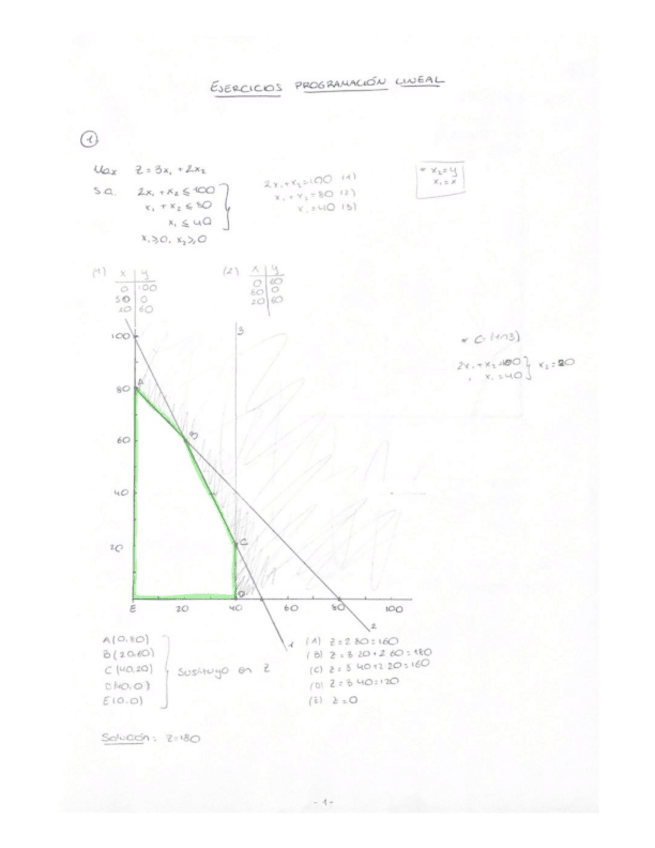 EJERCICIOS PROGRAMACIÓN LINEAL
1
Max Z=3x₁+2x₂
s.a. 2x₁+x₂≤100
x₁+x₂≤80
x₁≤40
x₁≥0, x₂≥0
2x₁+x₂=100 (1)
x₁+x₂=80 (2)
x₁=40 (3)
* x₂=y
x₁=x
(1) x y
0 100
50 0
20 60
(2) x y
0 80
80 0
20 60
* C (1∩3)
2x₁+x₂=100
x₁=40
x₂=20
100
80
60
40
20
A
B
C
D
E 20 40 60 80 100
3
1
2
A(0,80)
B(20,60)
C(40,20)
D(40,0)
E(0,0)
Sustituyo en Z
(A) Z=2·80=160
(B) Z=3·20+2·60=180
(C) Z=3·40+2·20=160
(D) Z=3·40=120
(E) Z=0
Solución: Z=180
- 1 -